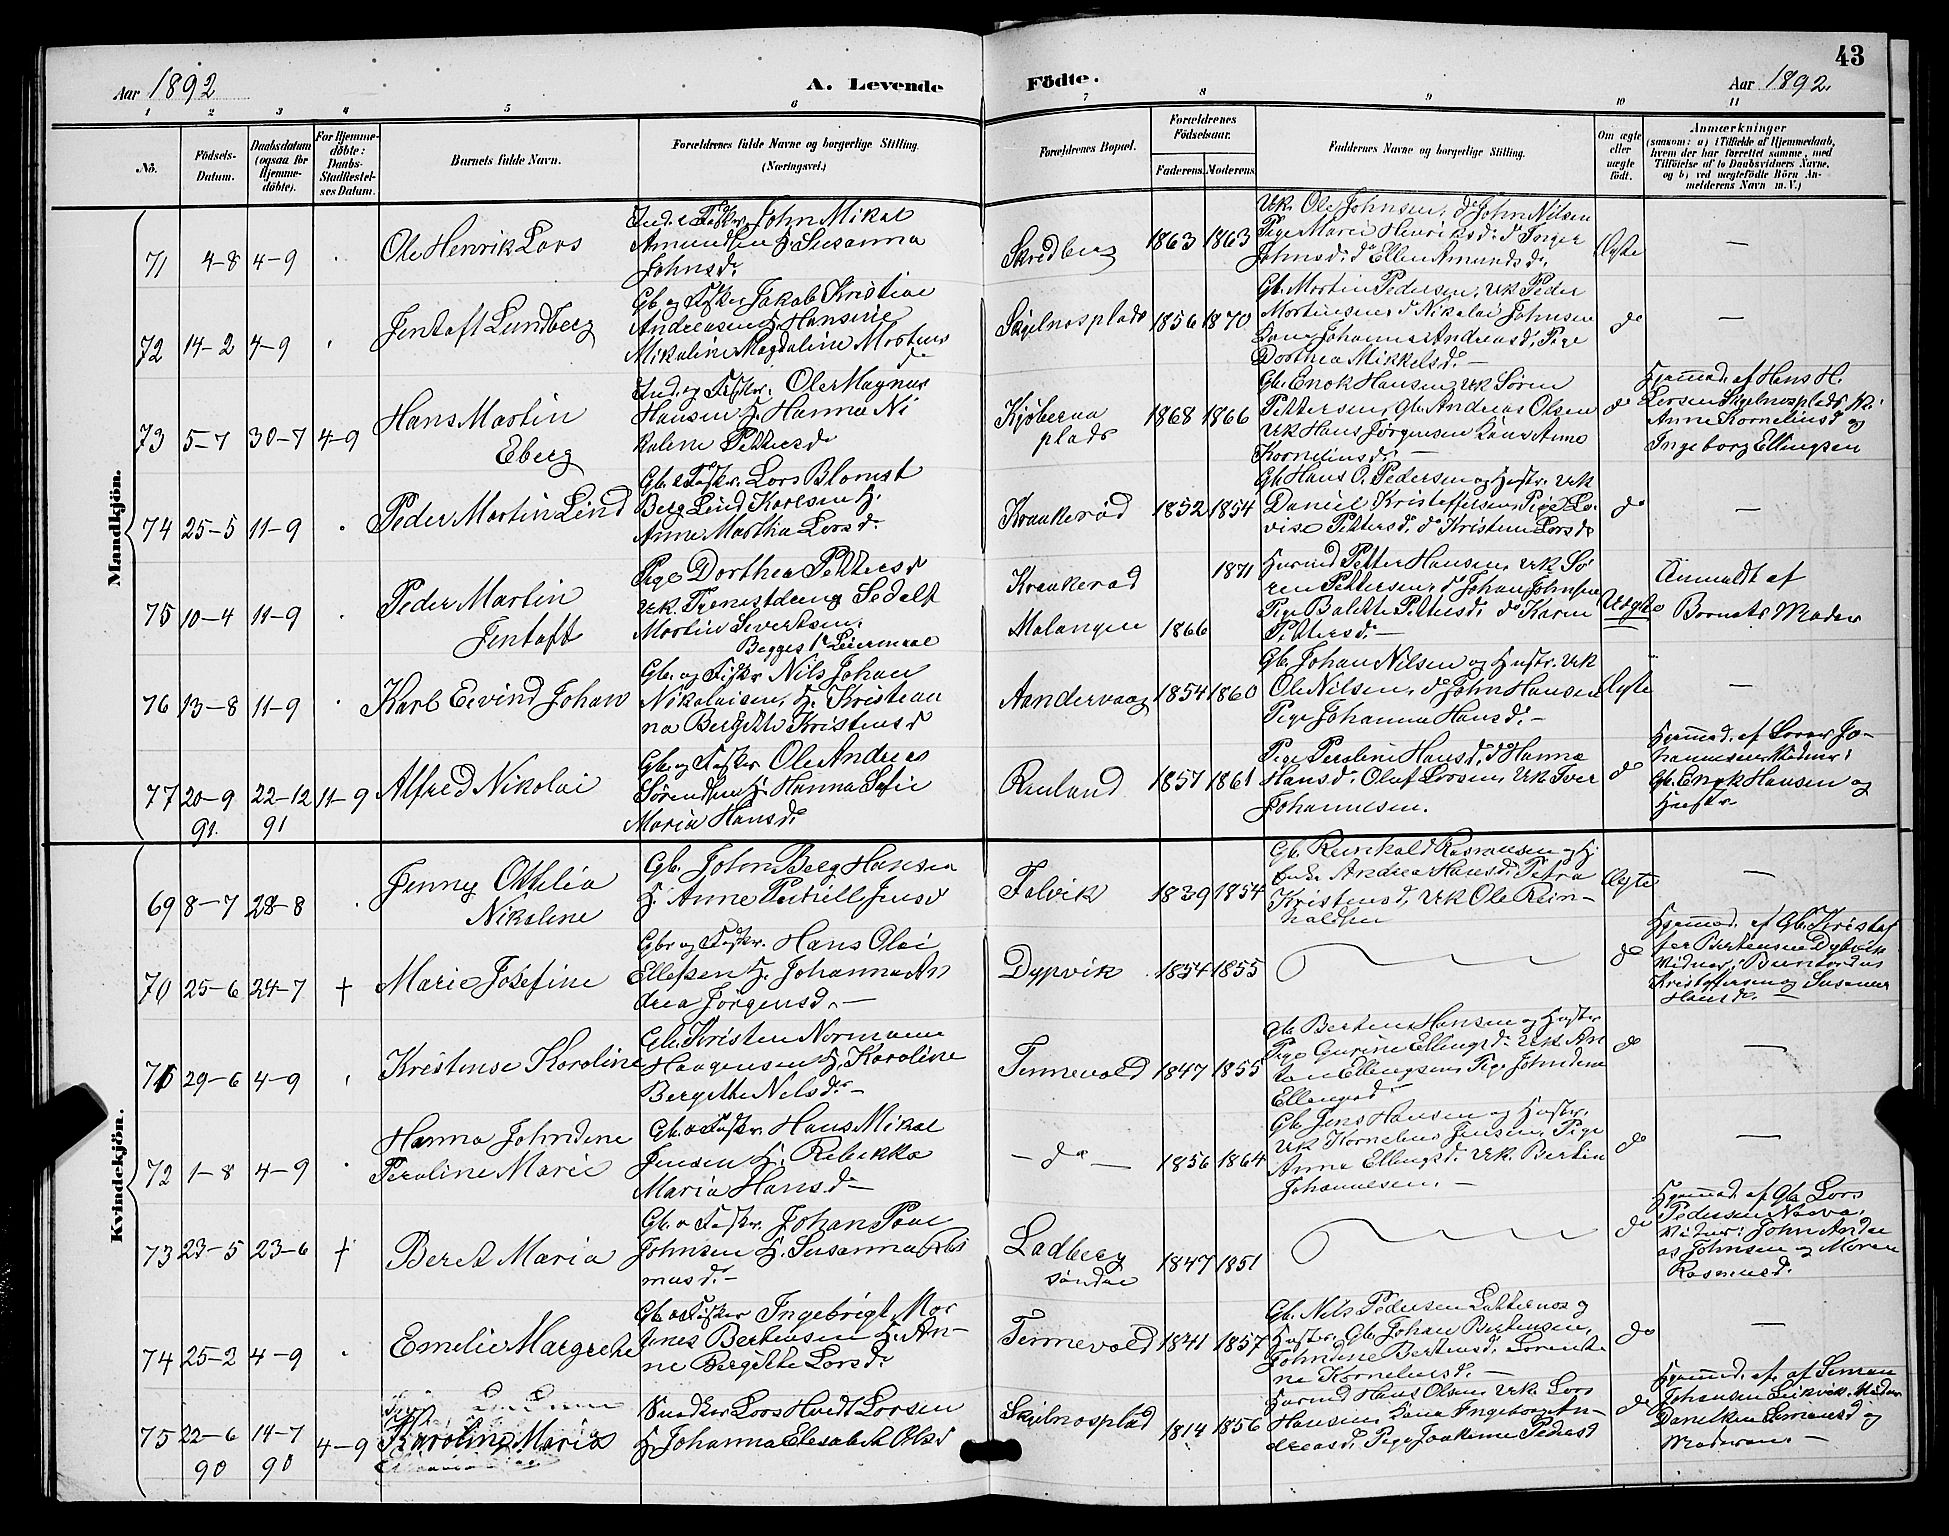 43
Aar 1892
A. Levende
Födte.
Aar 1892.
1 2 3 4 5 6 7 8 9 10 11
No.
Födsels-
Datum.
Daabsdatum
(ogsaa for
Hjemme-
döbte).
For Hjemme-
döbte:
Daabs-
Stadfæstel-
ses Datum.
Barnets fulde Navn.
Forældrenes fulde Navne og borgerlige Stilling.
(Næringsvei.)
Forældrenes Bopæl.
Forældrenes
Födselsaar.
Faderens.
Moderens.
Faddernes Navne og borgerlige Stilling.
Om ægte
eller
uægte
födt.
Anmærkninger
(saasom: a) i Tilfælde af Hjemmedaab,
hvem der har forrettet samme, med
Tilföielse af to Daabsvidners Navne,
og b) ved uægtefödte Börn An-
melderens Navn m. V.)
Mandkjön.
71 4-8 4-9
Ole Henrik Lars
Ind. e Fisker John Mikal
Amundsen H. Susanna
Johnsd.
Skredberg
1863 1863
Uk. Ole Johnsen, do John Nilsen
Pige Marie Henriksd. do Inger
Johnsd. do Ellen Amundsd.
Ægte
—
72 14-2 4-9
Jentoft Lundberg
Gb. og Fisker Jakob Kristian
Andreasen H. Hansine
Mikaline Magdaline Mortens
d.
Skjelnesplads
1856 1870
Gb. Mortin Pedersen, Uk Peder
Mortinsen do Nikolai Johnsen
Kone Johanna Andreasd. Pige
Dorthea Mikkelsd. —
do
—
73 5-7 30-7 4-9
Hans Martin
Eberg
Ind. og Fisker. Ole Magnus
Hansen H. Hanna Ni
kaline Pettersd.
plads
1868 1866
Gb. Enok Hansen, Uk Søren
Pettersen, Gb. Andreas Olsen
Uk Hans Jørgensen Kone Anne
Kornelinsd. —
do
Hjemmed. af Hans H.
Larsen Skjelnesplads, Vi:
Anne Kornelinsd og
Ingeborg Ellingsen
74 25-5 11-9
Peder Martin Lind
Gb. e Fisker. Lars Blomst
Berg Lind Karlsen H.
Anne Martha Larsd.
Kraakerød
1852 1854
Gb Hans O. Pedersen og Hustr. Uk
Daniel Kristoffersen, Pige Lo-
vise Pettersd. do Kristine Larsd
do
—
75 10-4 11-9
Peder Martin
Jentoft
Pige Dorthea Pettersd
Uk. Tjenestdreng Sedolf
Martin Sivertsen.
Begges 1e Leiermaal
Kraakerød
Malangen
1866
1871
Husmd Petter Hansen, Uk Sø
ren Pettersen, do Johan Johnsen
Pige Balette Pettersd. do Karen
Pettersd. —
Uægte
Anmeldt af
Barnets Moder
76 13-8 11-9
Karl Eivind Johan
Gb. og Fisker Nils Johan
Nikolaisen, H. Kristian
na Bergitte Kristensd
Aandervaag
1854 1860
Gb. Johan Nilsen og Hustr. Uk
Ole Nilsen, do John Hansen
Pige Johanna Hansd. —
Ægte
—
77 20-9 91. 22-12 91 11-9
Alfred Nikolai
Gb. og Fisker Ole Andreas
Sørensen H. Hanna Sofie
Maria Hansd.
Rauland
1857 1861
Pige Peroline Hansd. do Hanna
Hansd. Oluf Larsen, Uk Iver
Johannesen.
do
Gb. Enok Hansen og
Hustr
Kvindekjön.
69 8-7 28-8
Jenny Othelia
Nikoline
Gb. John Berg Hansen
H. Anne Pernille Jensd
Falvik
1839 1854
Gb. Reinhold Rasmussen og H.
Andrea Hansd. Petra
Kristensd. Uk Ole Rein-
holdsen
Ægte
—
70 25-6 24-7 †
Marie Josefine
Gbr og Fisker. Hans Olai
Ellefsen H. Johanna An
drea Jørgensd. —
Dypvik
1854 1855
do
Hjemmed. af Gb. Kristof
fer Bertensen Dypvik
Vidner: Bernardus
Kristoffersen og Susanna
Hansd. —
71 29-6 4-9
Kristense Karoline
Gb. Kristen Normann
Haagensen H. Karoline
Bergitte Nilsd. —
Tennevold
1847 1855
Gb Berten Hansen og Hustr
Pige Gurine Ellingsd. Uk An
ton Ellingsen, Pige Johndine
Ellingsd
do
—
72 1-8 4-9
Hanna Johndine
Peroline Marie
Gb. o Fisker Hans Mikal
Jensen H. Rebekka
Maria Hansd. —
— do —
1856 1864
Gb. Jens Hansen og Hustr.
Uk Kornelius Jensen, Pige
Anna Ellingsd. Uk. Bertin
Johannesen. —
do
—
73 23-5 23-6 †
Beret Maria
Gb. o Fisker. Johan Paul
Johnsen H. Susanna Ras
musd. —
Ladberg
søndre
1847 1851
do
Hjemmed. af Gb Lars
Pedersen
Vidner: John Andre
as Johnsen og Maren
Rasmusd.
74 25-2 4-9
Emelie Margrethe
Gb. o Fisker Ingebrigt Mar
Bertensen H. An-
ne Bergitte Larsd
Tennevold
1841 1857
Gb. Nils Pedersen Latternes og
Hustr. Gb. Johan Bertensen,
Johndine Bertensd. Lorentse
ne Kornelinsd. —
do
—
75 22-6 90 14-7 90 4-9
Karoline Maria
Snedker Lars Hvidt Larsen
H. Johanna Elesabeth Olsd
Skjelnesplad
1814 1856
Husmd Hans Olsen, Uk. Lars
Hansen, Kone Ingeborg An-
dreasd. Pige Joakime Pedersd
do
Hjemmed. af Simon
Johansen Leikvik. Vidner
Simonsd og
Moderen. —